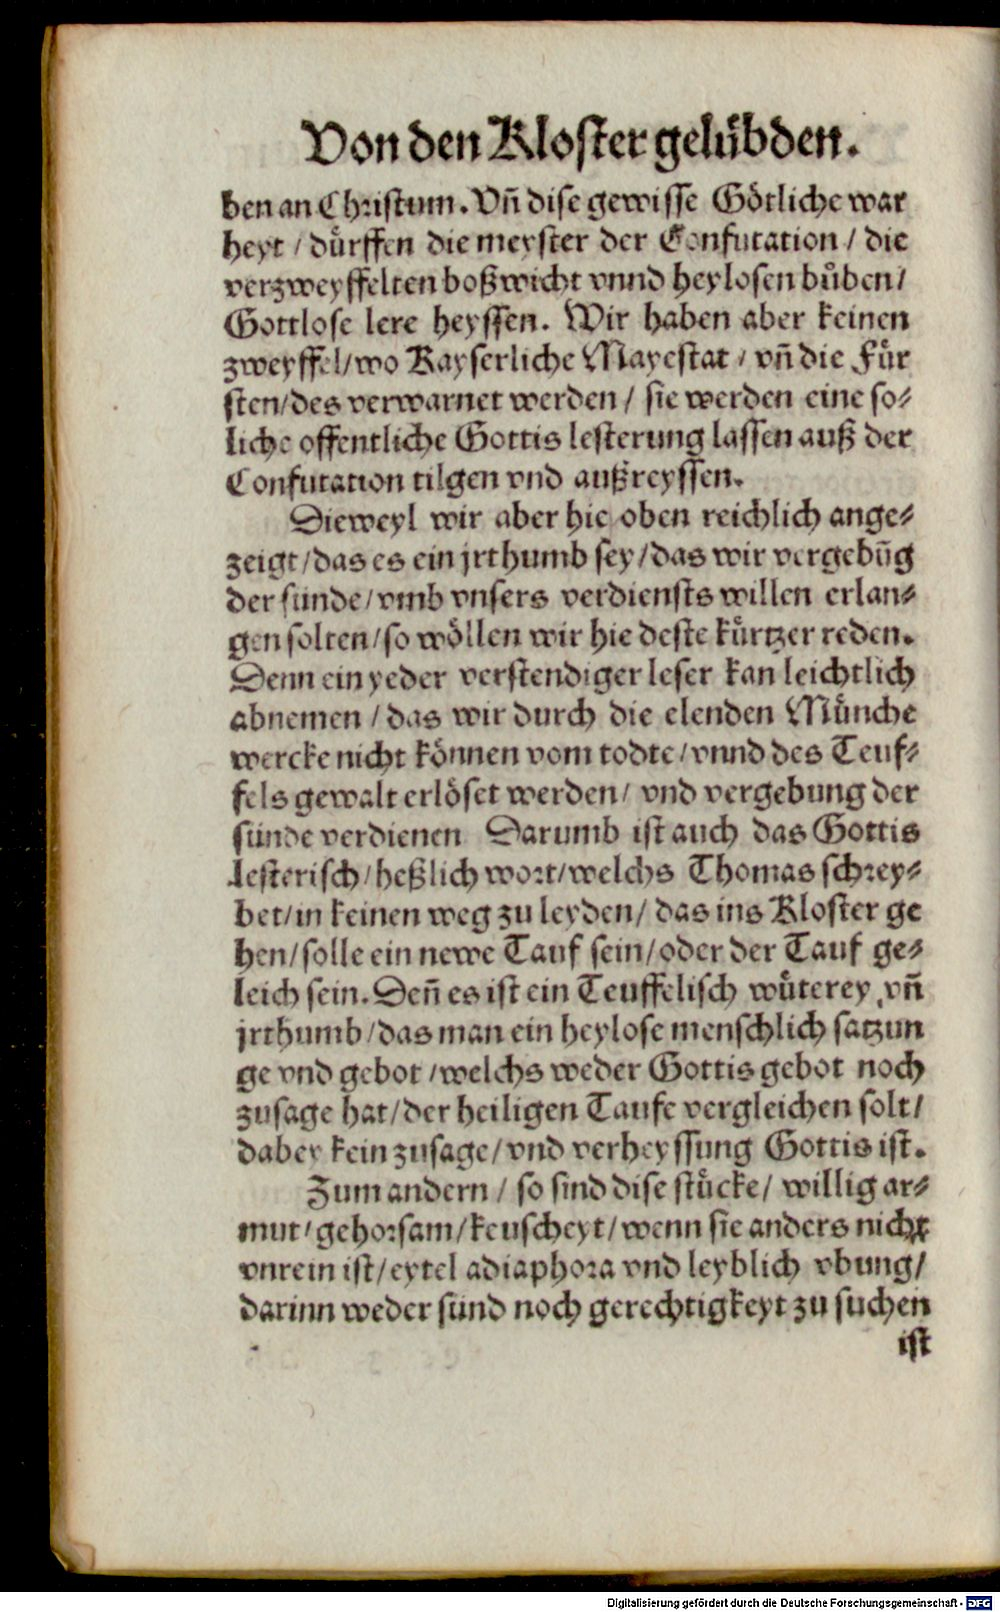 Von den Kloster gelübden.
ben an Christum. Vñ dise gewisse Götliche war
heyt / dürffen die meyster der Confutation / die
verzweyffelten boßwicht vnnd heylosen bůben /
Gottlose lere heyssen. Wir haben aber keinen
zweyffel / wo Kayserliche Mayestat / vñ die Für
sten / des verwarnet werden / sie werden eine so⸗
liche offentliche Gottis lesterung lassen auß der
Confutation tilgen vnd außreyssen.
Dieweyl wir aber hie oben reichlich ange⸗
zeigt / das es ein jrthumb sey / das wir vergebūg
der sünde / vmb vnsers verdiensts willen erlan⸗
gen solten / so wöllen wir hie deste kürtzer reden.
Denn ein yeder verstendiger leser kan leichtlich
abnemen / das wir durch die elenden Münche
wercke nicht können vom todte / vnnd des Teuf⸗
fels gewalt erlöset werden / vnd vergebung der
sünde verdienen Darumb ist auch das Gottis
lesterisch / heßlich wort / welchs Thomas schrey⸗
bet / in keinen weg zu leyden / das ins Kloster ge
hen / solle ein newe Tauf sein / oder der Tauf ge⸗
leich sein. Deñ es ist ein Teuffelisch wüterey , vñ
jrthumb / das man ein heylose menschlich satzun
ge vnd gebot / welchs weder Gottis gebot noch
zusage hat / der heiligen Taufe vergleichen solt /
dabey kein zusage / vnd verheyssung Gottis ist.
Zum andern / so sind dise stücke / willig ar⸗
mut / gehorsam / keuscheyt / wenn sie anders nicht
vnrein ist / eytel adiaphora vnd leyblich vbung /
darinn weder sünd noch gerechtigkeyt zu suchen
ist
Digitalisierung gefördert durch die Deutsche Forschungsgemeinschaft - DFG